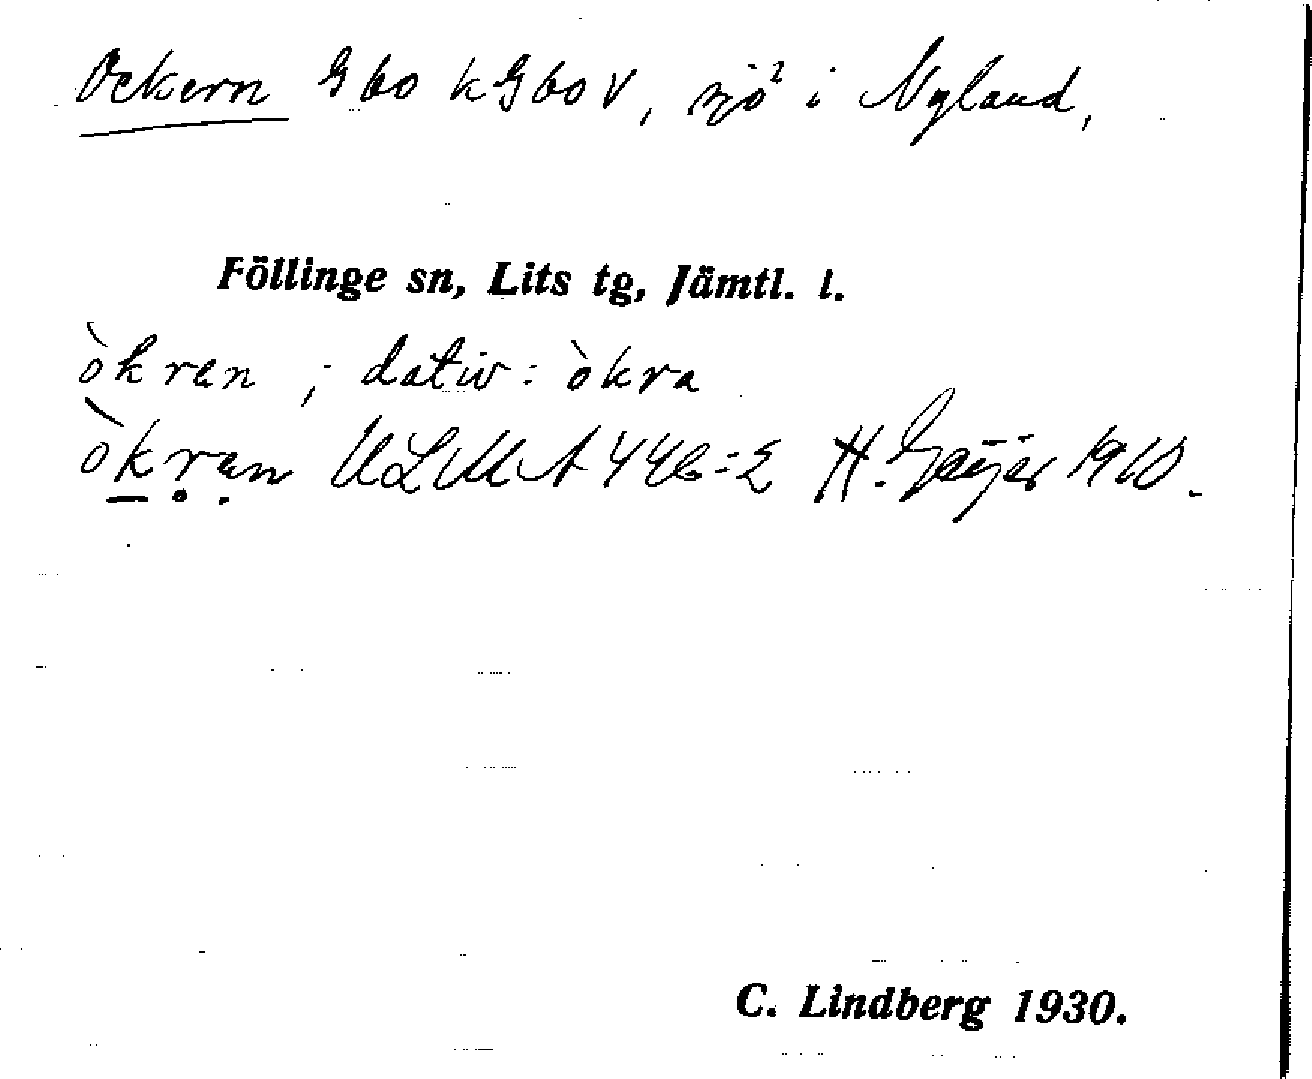 Ockern G 60 k G 60 V, sjö i Nyland,
Föllinge sn, Lits tg, Jämtl. l.
òkren ; dativ: òkra
òkren ULMA 446:2 H. Geijer 1910.
C. Lindberg 1930.